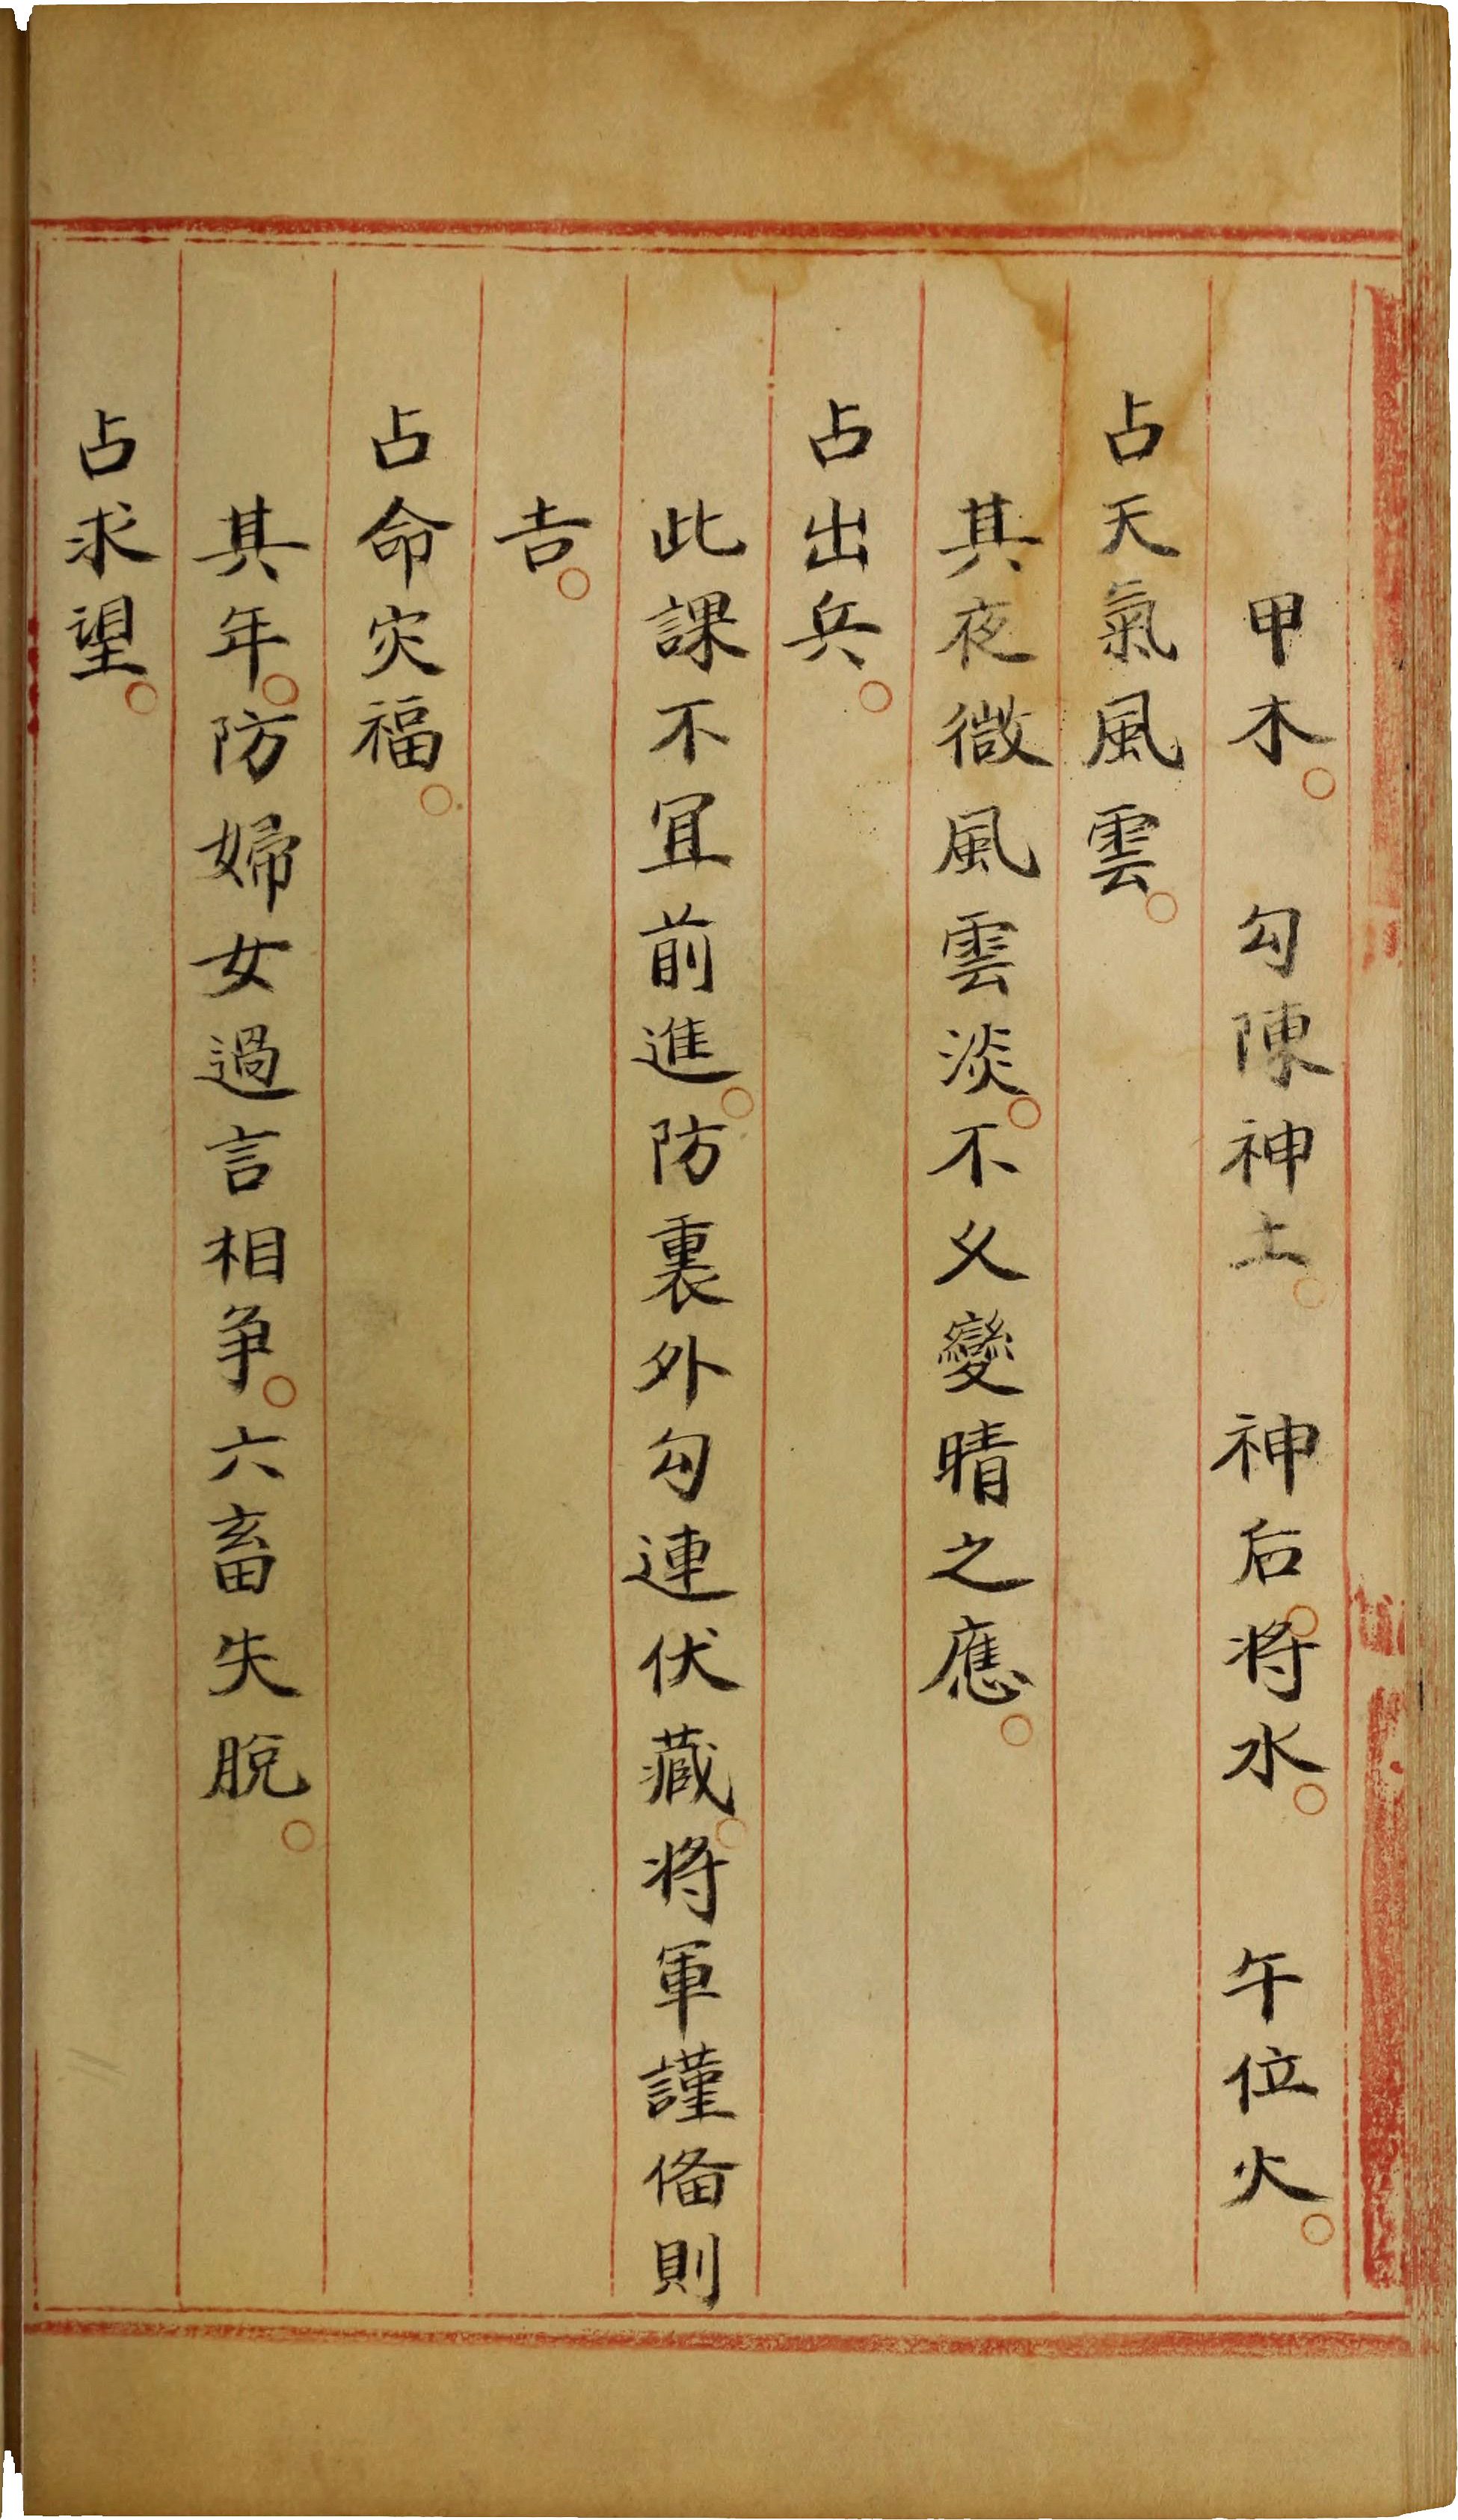 甲木。　勾陳神土。　神后。将水。　午位火。
占天氣風雲。
其夜微風雲淡。不乆變晴之應。
占出兵。
此課不宜前進。防裏外勾連伏藏。将軍謹俻則
吉。
占命灾福。
其年。防婦女過言相争。六畜失脫。
占求望。